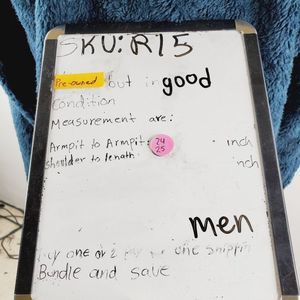 SKU: R15
Pre-owned but in good
condition
Measurement are:
Armpit to Armpit: 24 inch
shoulder to lenath: 25 inch
men
one or 2 for one
Bundle and save